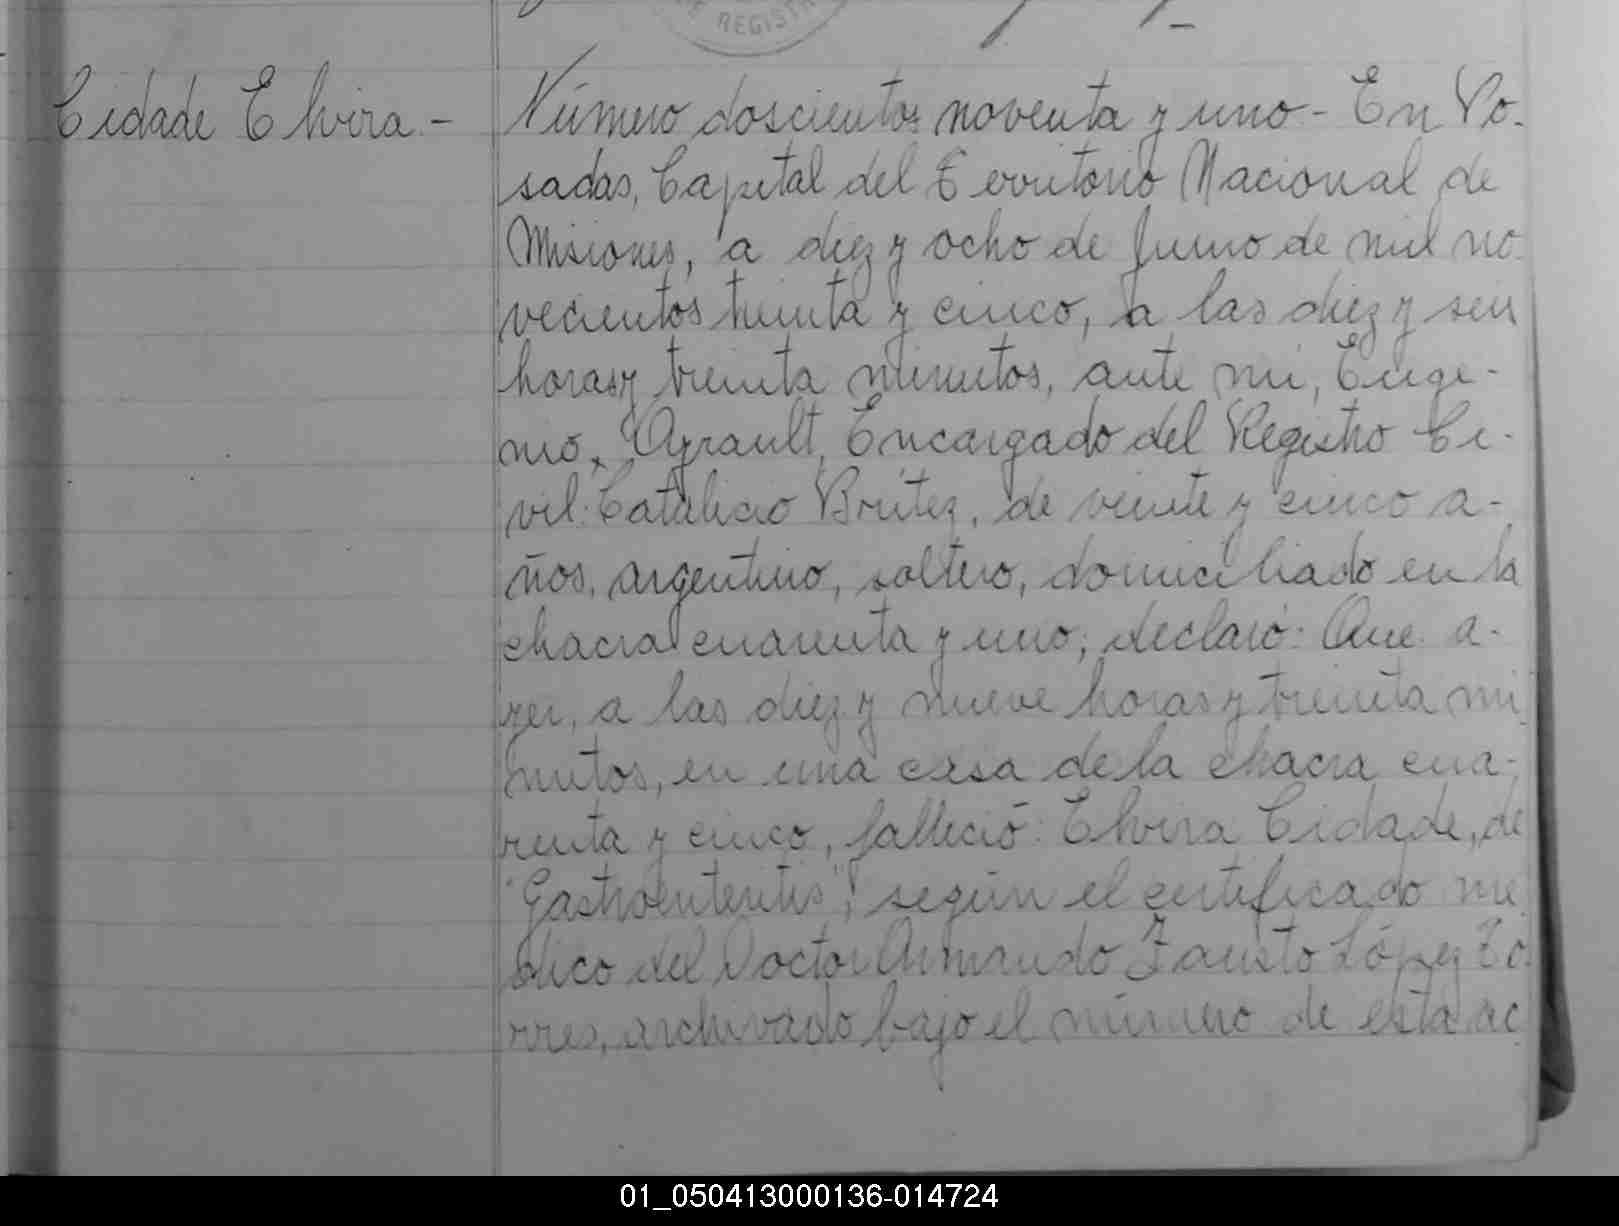 DE REGISTR
Cidade Elvira.-
Número doscientos noventa y uno - En Po-
sadas, Capital del Territorio Nacional de
Misiones, a diez y ocho de Junio de mil no-
vecientos treinta y cinco, a las diez y seis
horas y treinta minutos, ante mi, Euge-
nio Ayrault, Encargado del Registro Ci-
vil: Catalicio Britez, de veinte y cinco a-
ños, argentino, soltero, domiciliado en la
chacra cuarenta y uno; declaró: Que a-
yer, a las diez y nueve horas y treinta mi
nutos, en una casa de la chacra cua-
renta y cinco, falleció: Elvira Cidade, de
"Gastroenteritis", según el certificado mé
dico del Doctor Armando Fausto López To
rres, archivado bajo el número de esta ac
01_050413000136-014724